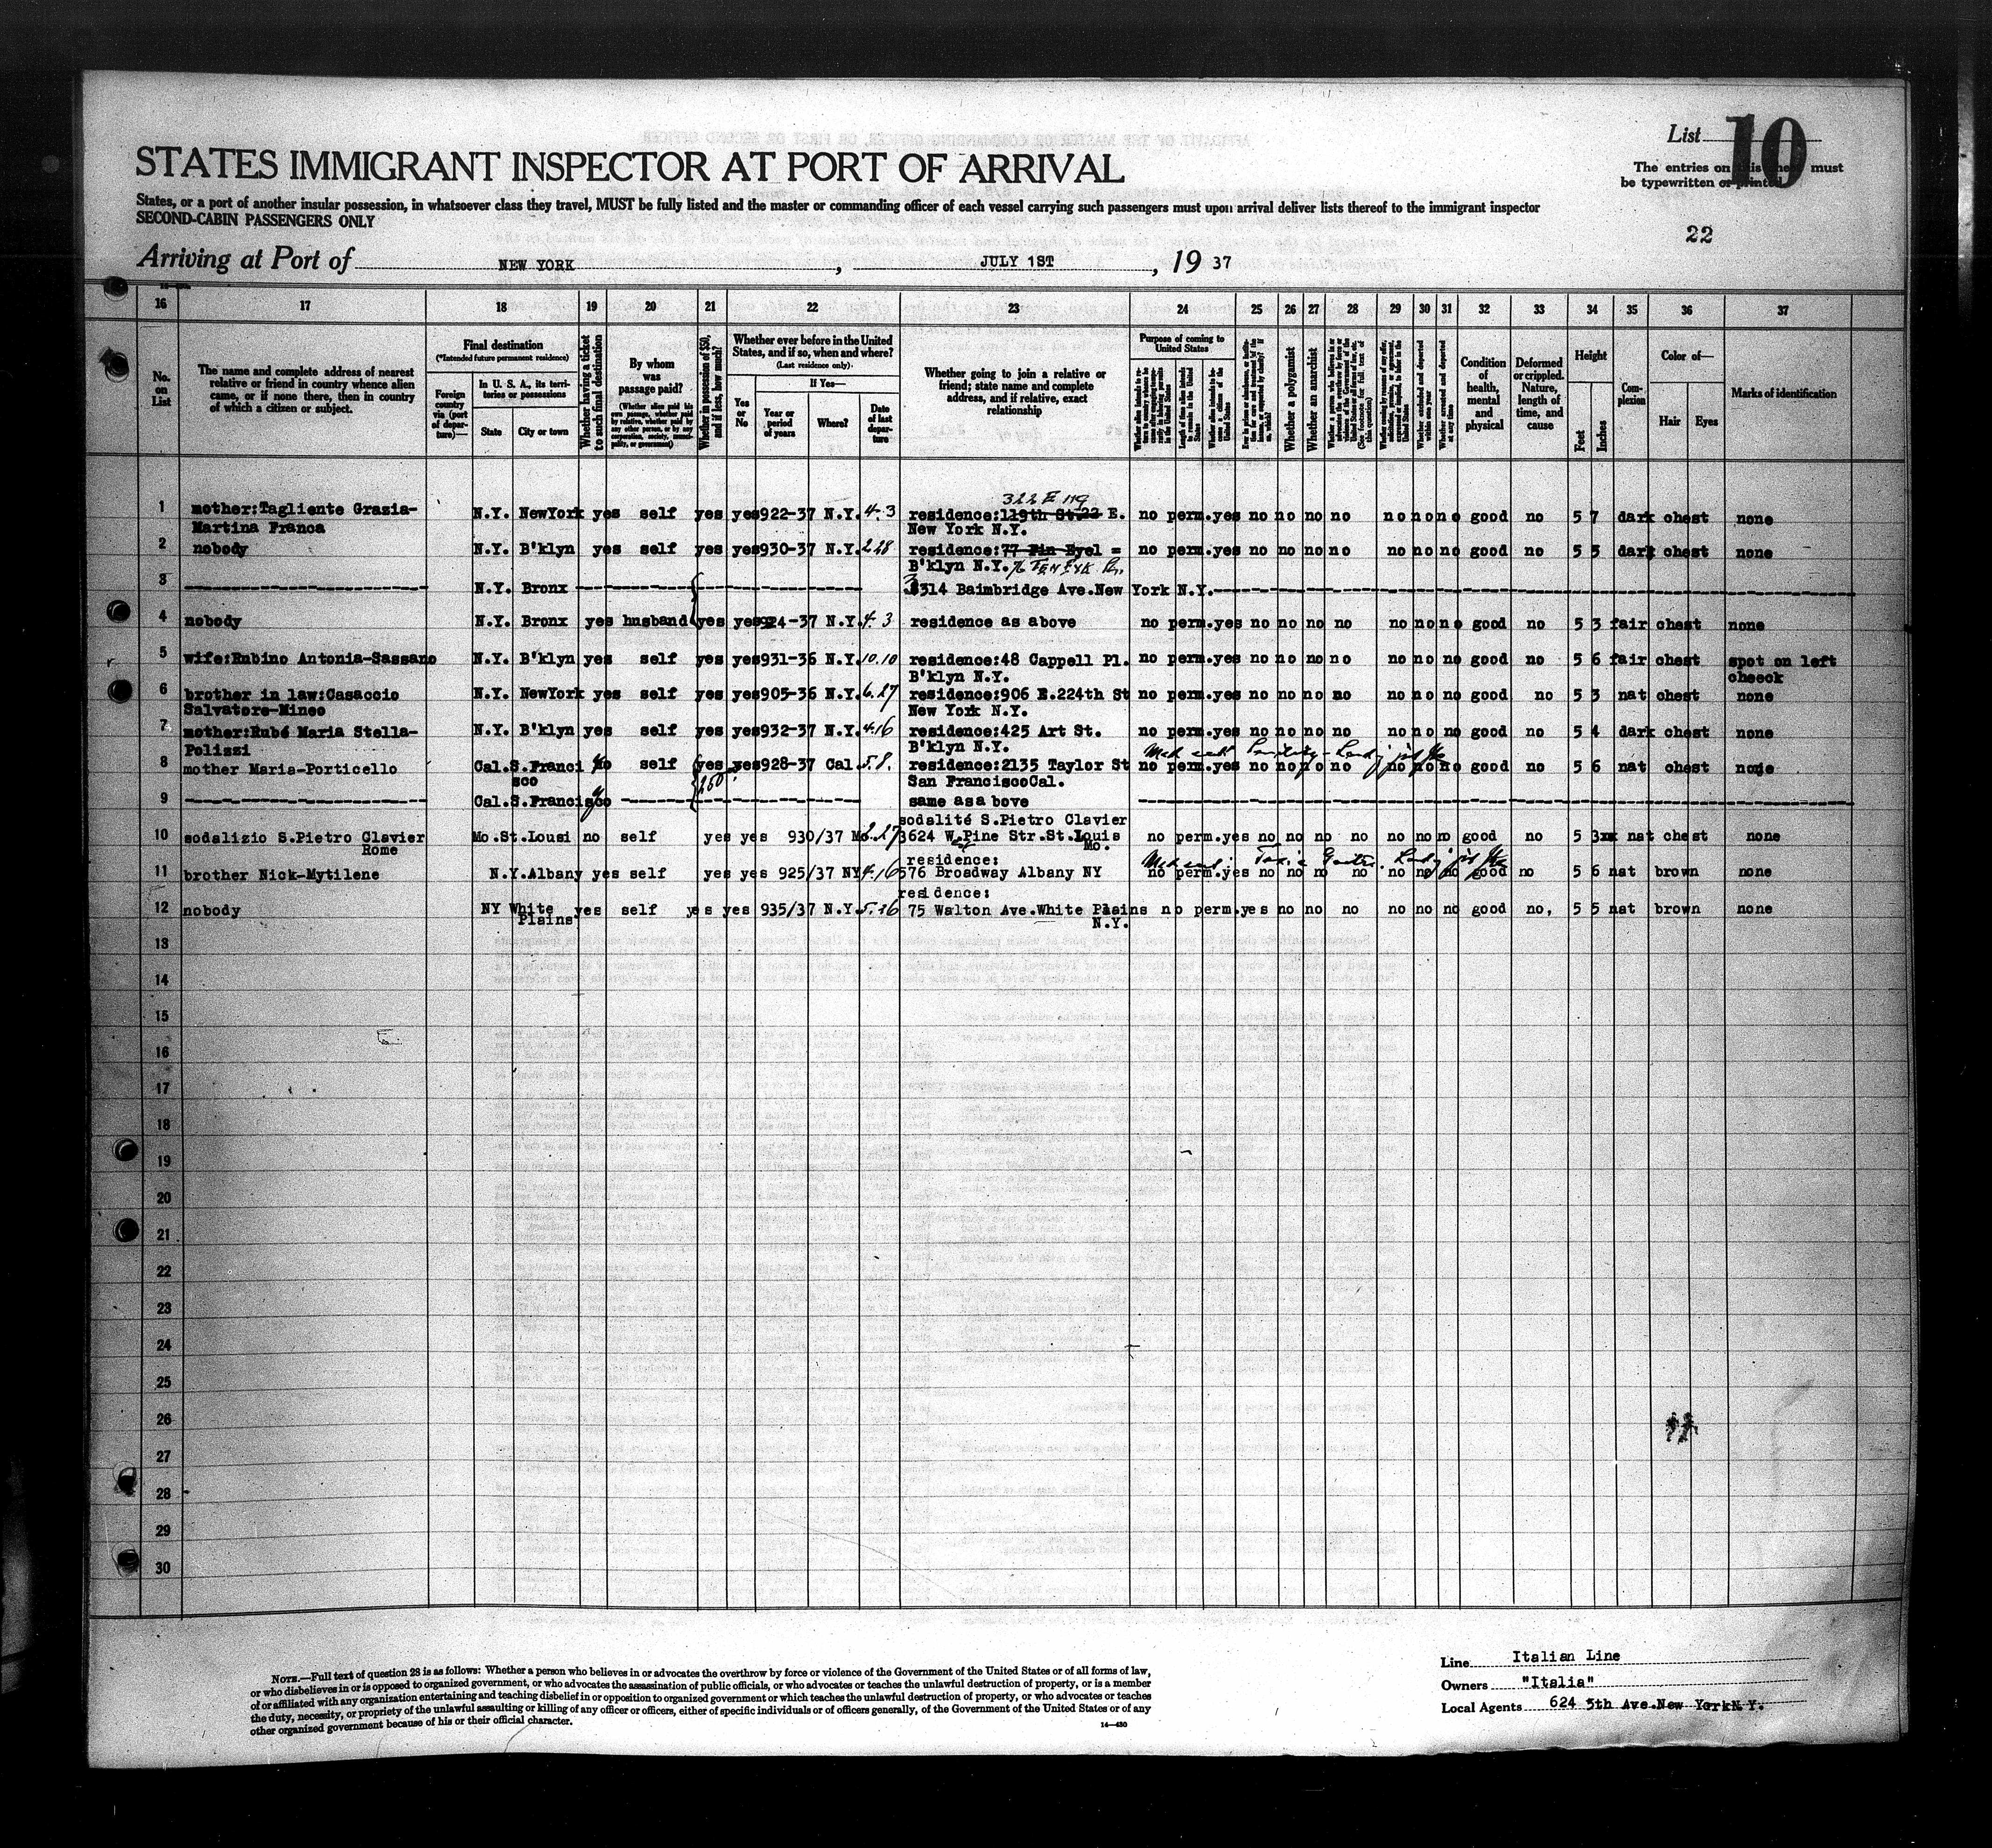 List 10
STATES IMMIGRANT INSPECTOR AT PORT OF ARRIVAL
The entries on this sheet must
be typewritten or printed
States, or a port of another insular possession, in whatsoever class they travel, MUST be fully listed and the master or commanding officer of each vessel carrying such passengers must upon arrival deliver lists thereof to the immigrant inspector
SECOND-CABIN PASSENGERS ONLY
22
Arriving at Port of NEW YORK, JULY 1ST, 19 37
16 17 18 19 20 21 22 23 24 25 26 27 28 29 30 31 32 33 34 35 36 37
No. on List
The name and complete address of nearest relative or friend in country whence alien came, or if none there, then in country of which a citizen or subject.
Final destination
(*Intended future permanent residence)
Foreign country via (port of departure)—
In U. S. A., its territories or possessions
State
City or town
Whether having a ticket to such final destination
By whom was passage paid?
(Whether alien paid his own passage, whether paid by relative, whether paid by any other person, or by any corporation, society, municipality, or government)
Whether in possession of $50, and if less, how much?
Whether ever before in the United States, and if so, when and where?
(Last residence only)
If Yes—
Yes or No
Year or period of years
Where?
Date of last departure
Whether going to join a relative or friend; state name and complete address, and if relative, exact relationship
Purpose of coming to United States
Whether a polygamist
Whether an anarchist
Whether excluded and deported within one year
Whether arrested and deported at any time
Condition of health, mental and physical
Deformed or crippled. Nature, length of time, and cause
Height
Feet
Inches
Complexion
Color of—
Hair
Eyes
Marks of identification
322 E 119
1 mother:Tagliente Grazia- N.Y. NewYork yes self yes yes 922-37 N.Y. 4.3 residence:119th St.22 E. no perm.yes no no no no no no no good no 5 7 dark chest none
Martina Franca New York N.Y.
2 nobody N.Y. B'klyn yes self yes yes 930-37 N.Y. 2.28 residence:77 Pin Eyel = no perm.yes no no no no no no no good no 5 5 dark chest none
B'klyn N.Y.
3 N.Y. Bronx 3314 Baimbridge Ave.New York N.Y.
4 nobody N.Y. Bronx yes husband yes yes 924-37 N.Y. 4.3 residence as above no perm.yes no no no no no no no good no 5 3 fair chest none
5 wife:Rubino Antonia-Sassano N.Y. B'klyn yes self yes yes 931-36 N.Y. 10.10 residence:48 Cappell Pl. no perm.yes no no no no no no no good no 5 6 fair chest spot on left
B'klyn N.Y. cheeck
6 brother in law:Casaccio N.Y. NewYork yes self yes yes 905-36 N.Y. 6.27 residence:906 E.224th St no perm.yes no no no no no no no good no 5 3 nat chest none
Salvatore-Mineo New York N.Y.
7 mother:Rubé Maria Stella- N.Y. B'klyn yes self yes yes 932-37 N.Y. 4.16 residence:425 Art St. no perm.yes no no no no no no no good no 5 4 dark chest none
Polizzi B'klyn N.Y.
8 mother Maria-Porticello Cal.S.Franci no self yes yes 928-37 Cal 5.8. residence:2135 Taylor St no perm.yes no no no no no no no good no 5 6 nat chest none
sco 250 San FranciscoCal.
9 Cal.S.Francisco same as a bove
sodalité S.Pietro Clavier
10 sodalizio S.Pietro Clavier Mo.St.Lousi no self yes yes 930/37 Mo. 2.27 3624 W.Pine Str.St.Louis no perm.yes no no no no no no no good no 5 3 nat chest none
Rome Mo.
residence:
11 brother Nick-Mytilene N.Y.Albany yes self yes yes 925/37 NY 4.16 576 Broadway Albany NY no perm.yes no no no no no no no good no 5 6 nat brown none
residence:
12 nobody NY White yes self yes yes 935/37 N.Y. 5.16 75 Walton Ave.White Plains no perm.yes no no no no no no good no, 5 5 nat brown none
Plains N.Y.
13
14
15
16
17
18
19
20
21
22
23
24
25
26
27
28
29
30
NOTE.—Full text of question 28 is as follows: Whether a person who believes in or advocates the overthrow by force or violence of the Government of the United States or of all forms of law,
or who disbelieves in or is opposed to organized government, or who advocates the assassination of public officials, or who advocates or teaches the unlawful destruction of property, or is a member
of or affiliated with any organization entertaining and teaching disbelief in or opposition to organized government or which teaches the unlawful destruction of property, or who advocates or teaches
the duty, necessity, or propriety of the unlawful assaulting or killing of any officer or officers, either of specific individuals or of officers generally, of the Government of the United States or of any
other organized government because of his or their official character.
14—430
Line Italian Line
Owners "Italia"
Local Agents 624 5th Ave.New YorkN.Y.